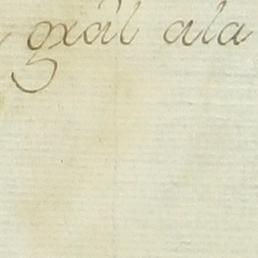 gxâl ala